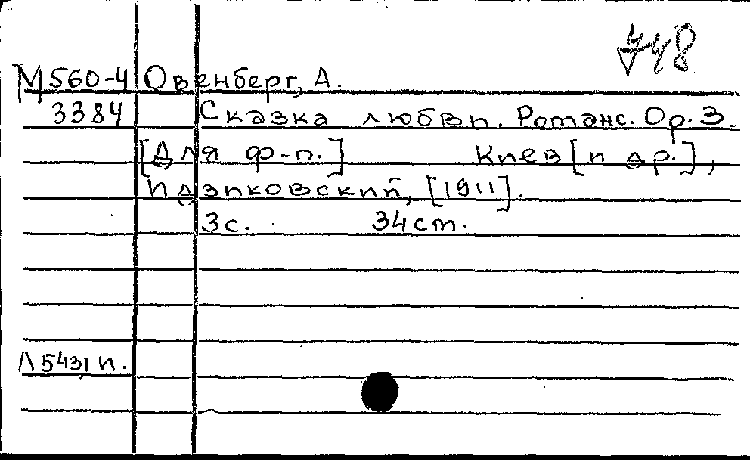 748
М560-4 Овенберг, А.
3384 Сказка любви. Романс. Op. 3.
[Для ф-п.] Киев [и др.],
Идзиковский, [1911].
3с. 34 cm.
Л 5431 п.